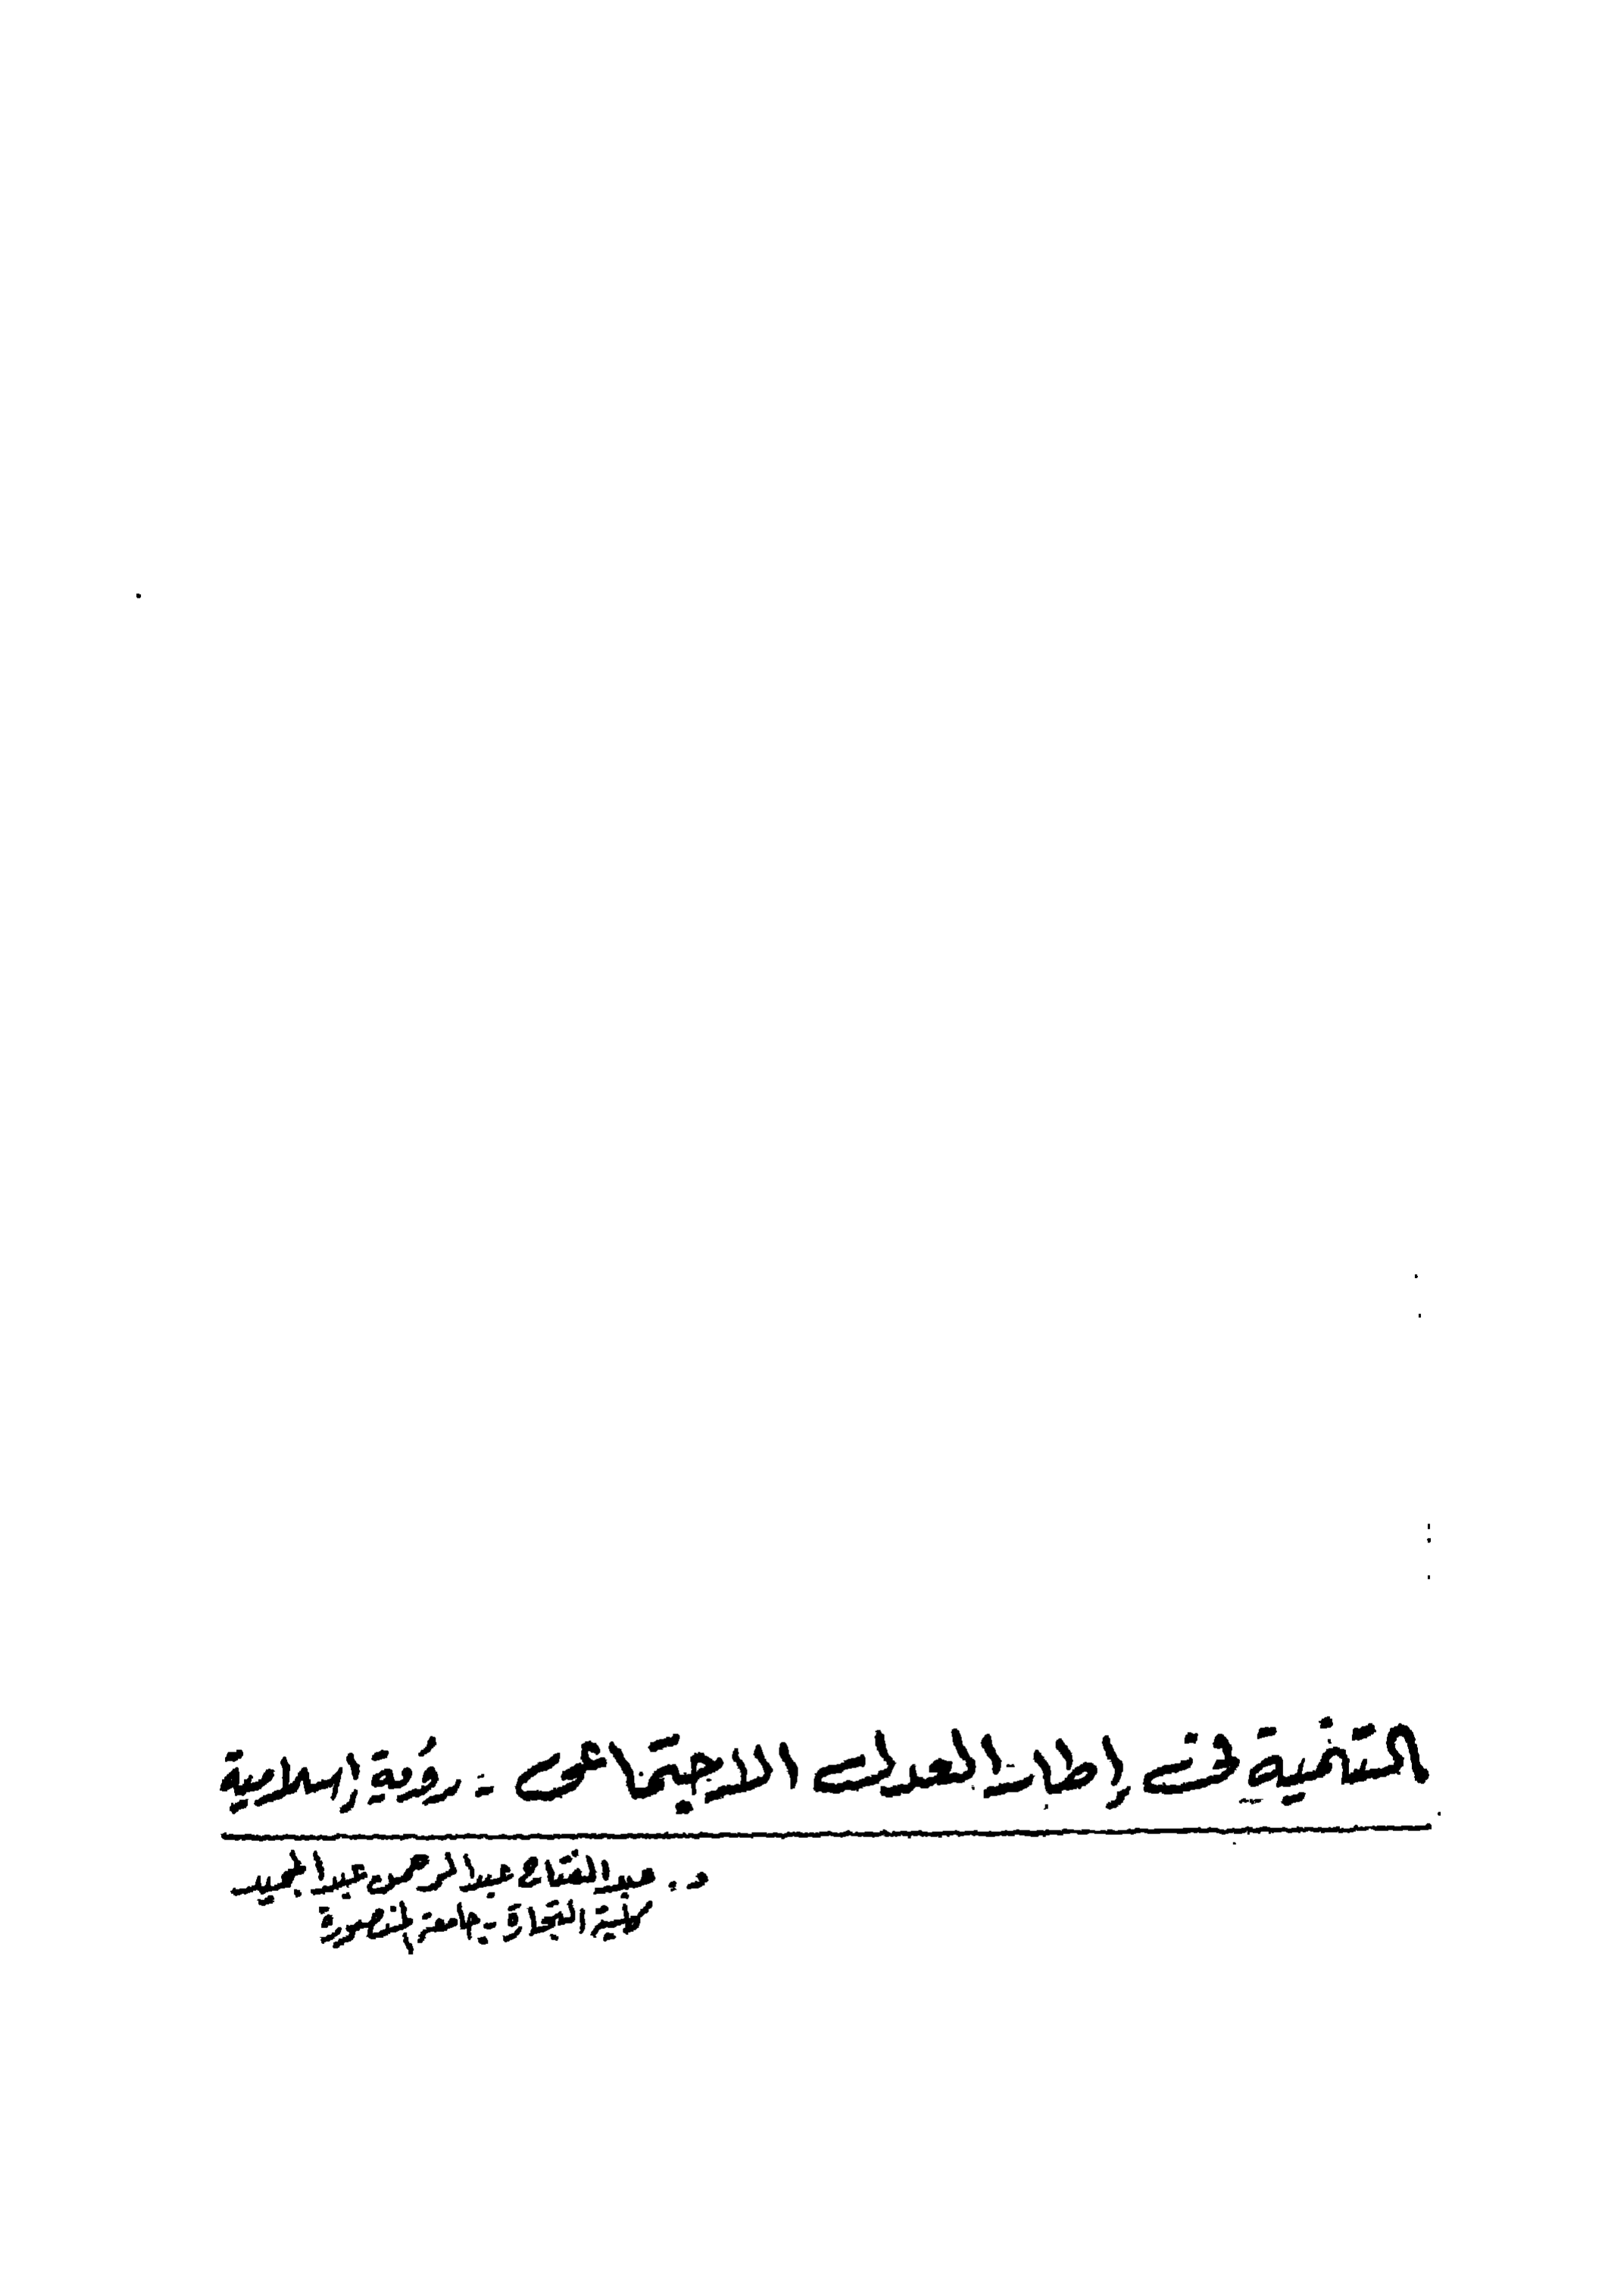 التنمية فى إطار العدل الاجتماعى - رؤية إسلامية
د. عبد الفتاح عبد الرحمن عبد المجيد
كلية التجارة - جامعة المنصورة